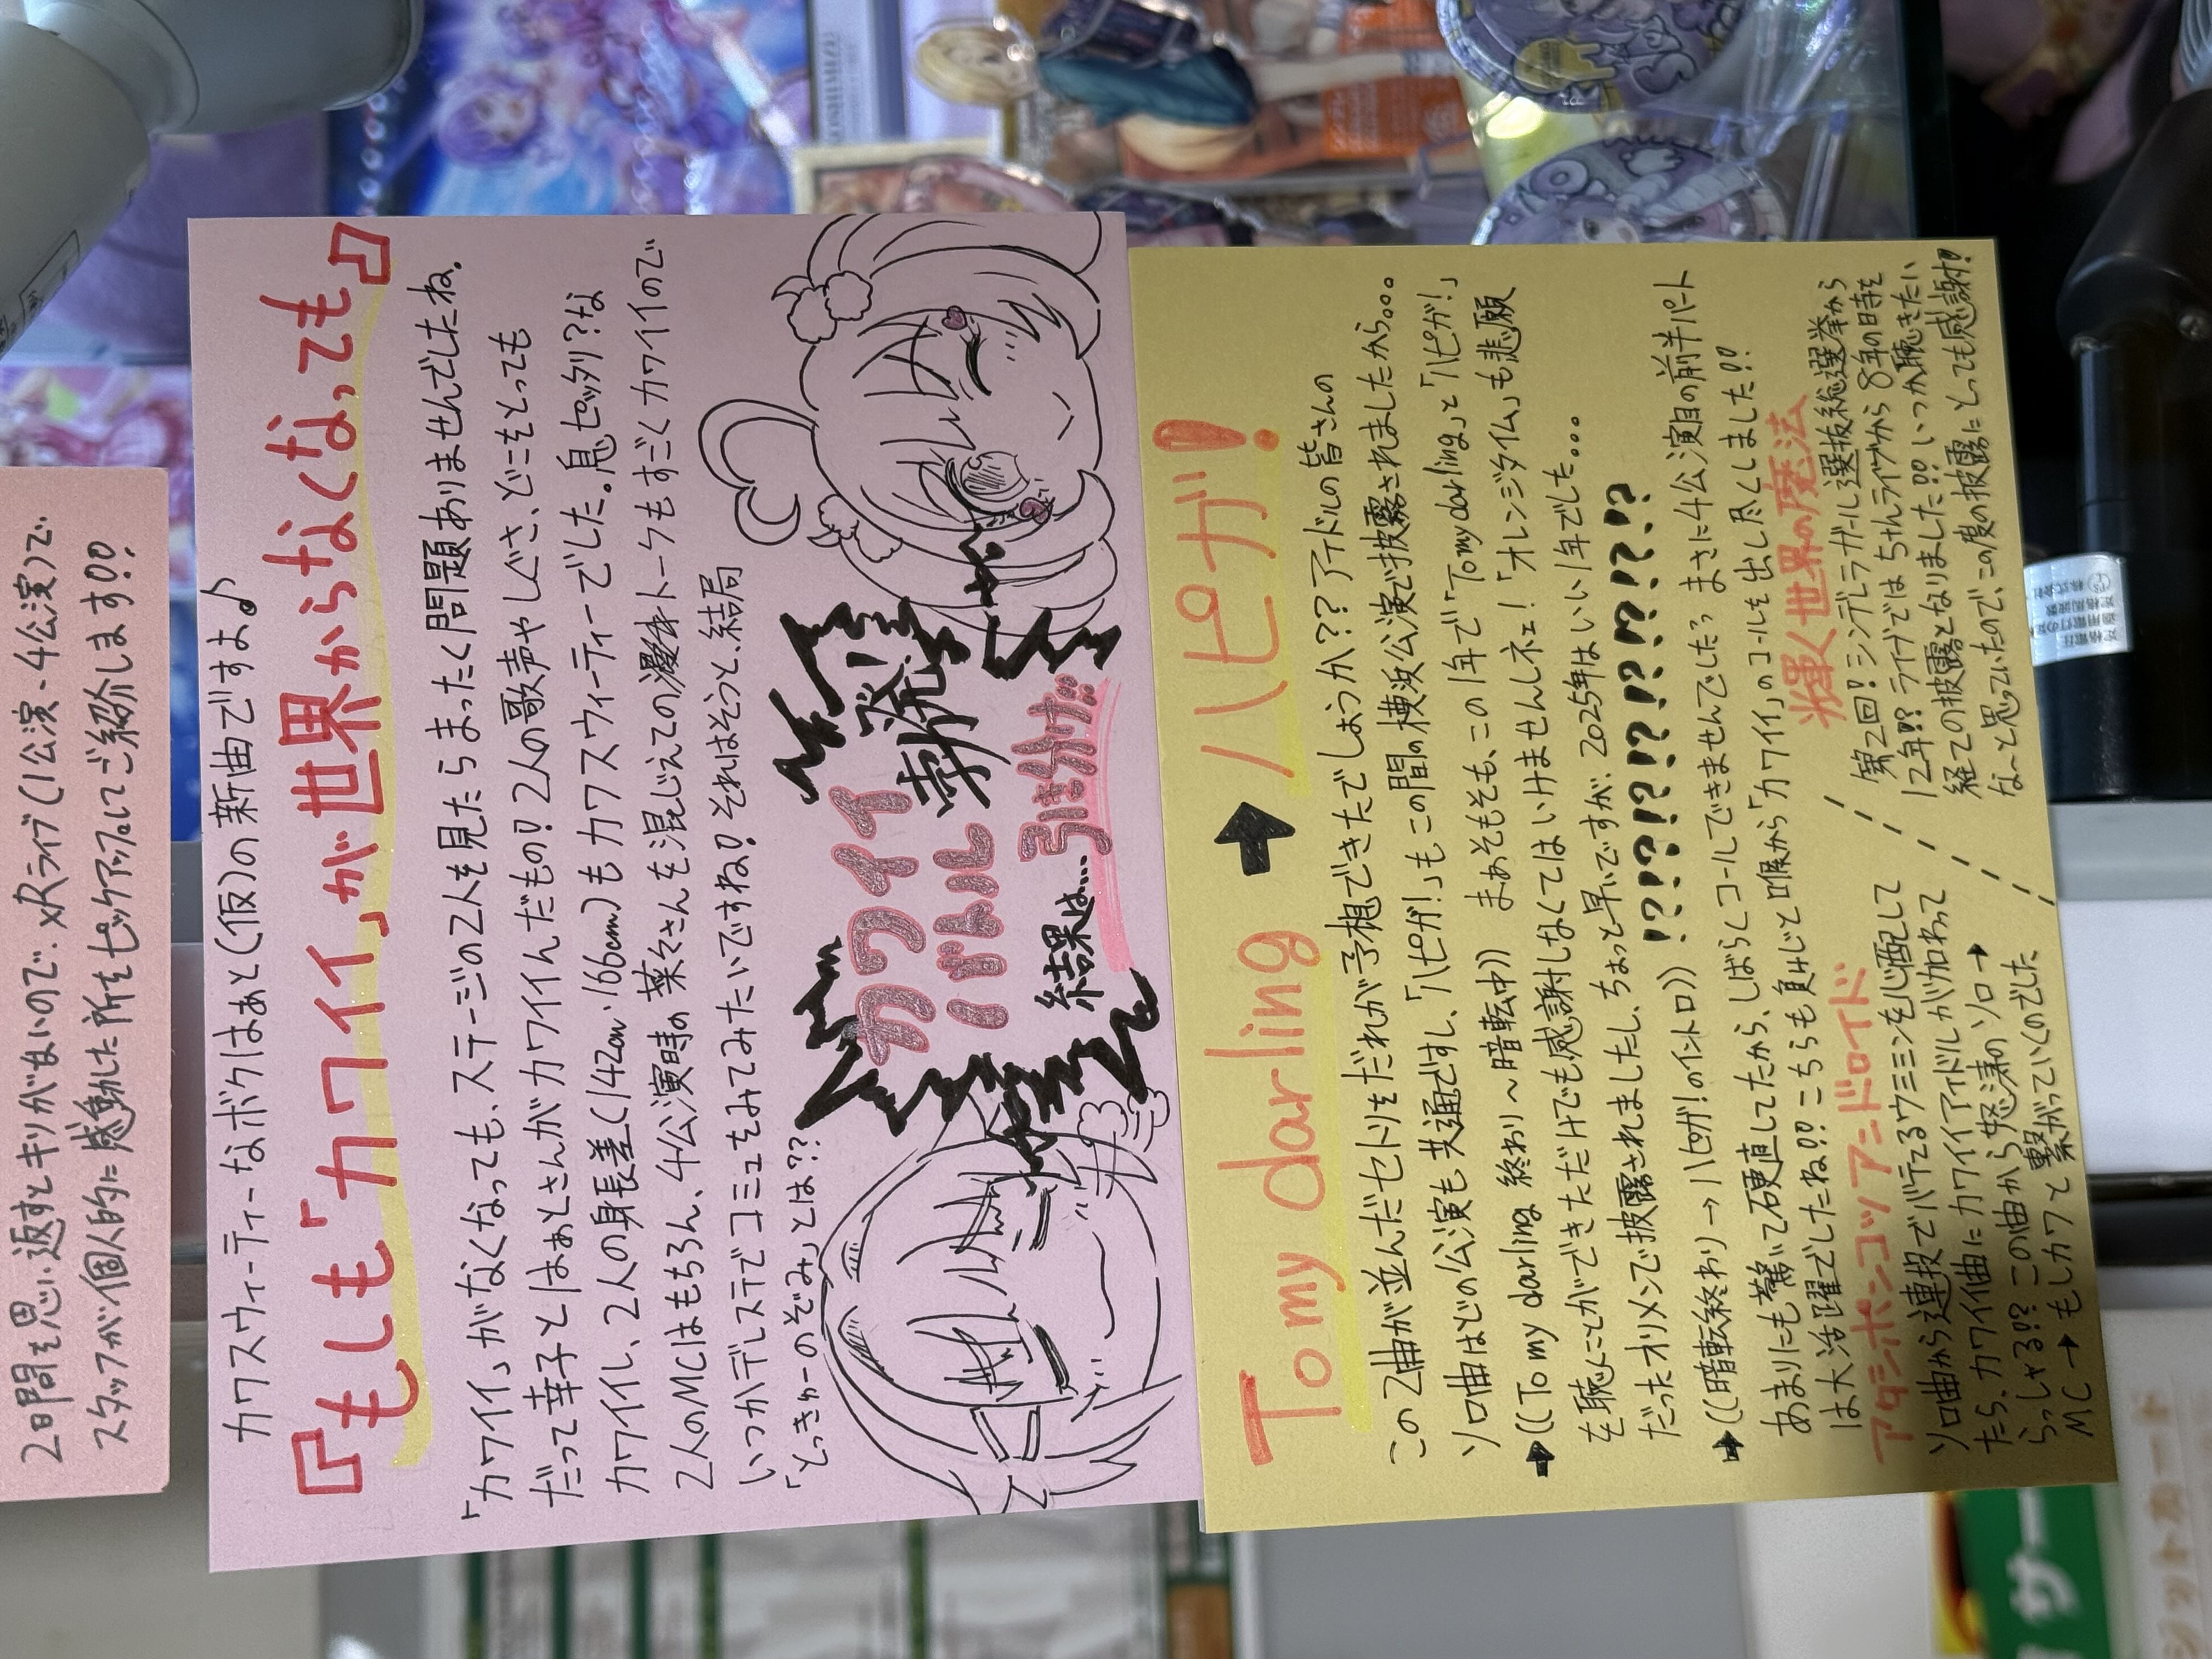 2日間を思い返すとキリがないので、xRライブ(1公演~4公演)で
スタッフが個人的に感動した所をピックアップしてご紹介します!!
カワスウィーティーなボクはぁと(仮)の新曲ですよ♪
『もしも「カワイイ」が世界からなくなっても』
「カワイイ」がなくなっても、ステージの2人を見たらまったく問題ありませんでしたね。
だって幸子とはぁとさんがカワイイんだもの!2人の歌声やしぐさ、どこをとっても
カワイイし、2人の身長差(142cm・166cm)もカワスウィーティーでした。息ピッタリ?な
2人のMCはもちろん、4公演時の菜々さんを混じえての漫才トークもすごくカワイイので
いつかデレステでコミュをみてみたいですね!それはそうと、結局
「とっきゅーのぞみ」とは??
カワイイ
バトル
勃発!
結果は…引き分け!!
To my darling ➡ ハピガ!
この2曲が並んだセトリをだれが予想できたでしょうか??アイドルの皆さんの
ソロ曲はどの公演も共通ですし、「ハピガ!」もこの間の横浜公演で披露されましたから。。。
➡((To my darling 終わり~暗転中)) まぁそもそも、この1年で「To my darling」と「ハピガ!」
を聴くことができただけでも感謝しなくてはいけませんしネェ!「オレンジタイム」も悲願
だったオリメンで披露されましたし、ちょっと早いですが、2025年はいい1年でした。。。
➡((暗転終わり→ハピガ!のイントロ)) !?!?!?!?!?!?!?!?!?
あまりにも驚いて硬直してたから、しばらくコールできませんでしたっ まさに4公演目の前半パート
は大活躍でしたね!!こちらも負けじと喉から「カワイイ」のコールを出し尽くしました!!
アタシポンコツアンドロイド
ソロ曲から連投でバテてるウサミンを心配して
たら、カワイイ曲にカワイイアイドルが加わって
らっしゃる!? この曲から怒涛のソロ➡
MC➡もしカワと繋がっていくのでした
輝く世界の魔法
第2回!シンデレラガール選抜総選挙から
12年!?ライブでは5thライブから8年の時を
経ての披露となりました!!いつか聴きたい
な~と思っていたので、この度の披露にとっても感謝!!